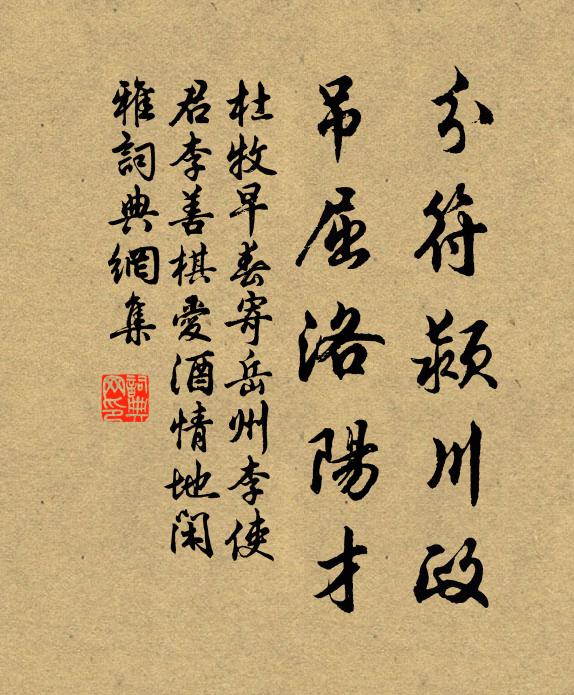 分符潁川政
吊屈洛陽才
杜牧早春寄岳州李使
君李善棋愛酒情地閑
雅詞典網集
詞典
网印